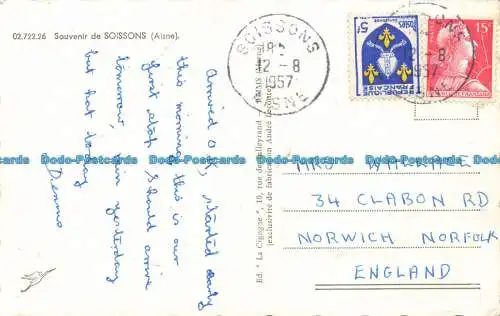 02.722.26 Souvenir de SOISSONS (Aisne).
Arrived O.K, started early
this morning this is our
first stop. Should arrive
tomorrow, rain yesterday
but hot today
Dennis
Ed. "La Cigogne", 10, rue de Talleyrand - REIMS
exclusivité de fabrication André Leconte
SOISSONS
12-8
1957
AISNE
5F
REPUBLIQUE
FRANÇAISE
15F
12-8
1957
MRS WALLACE
34 CLABON RD
NORWICH NORFOLK
ENGLAND
Dodo-Postcards Dodo-Postcards Dodo-Postcards Dodo-Postcards